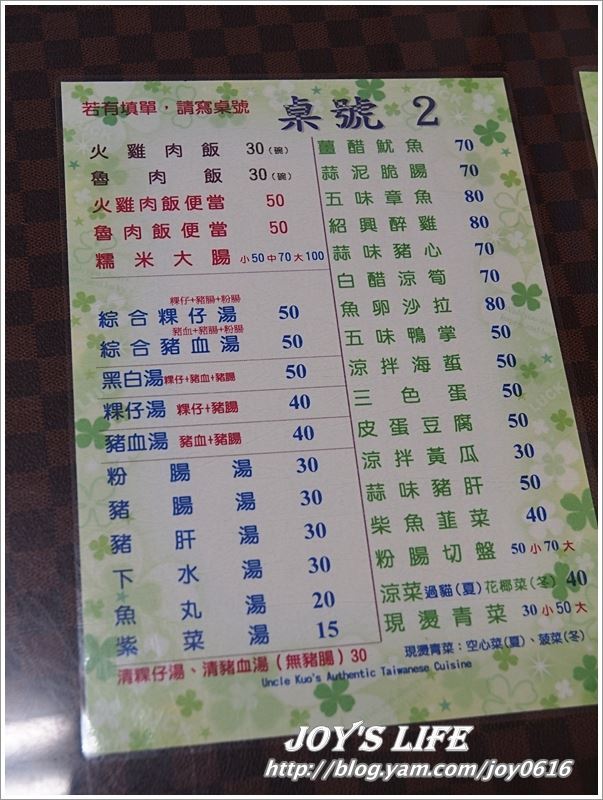 若有填單，請寫桌號
桌號 2
火雞肉飯 30（碗）
魯肉飯 30（碗）
火雞肉飯便當 50
魯肉飯便當 50
糯米大腸 小50中70大100
粿仔+豬腸+粉腸
綜合粿仔湯 50
豬血+豬腸+粉腸
綜合豬血湯 50
黑白湯 粿仔+豬血+豬腸 50
粿仔湯 粿仔+豬腸 40
豬血湯 豬血+豬腸 40
粉腸湯 30
豬腸湯 30
豬肝湯 30
下水湯 30
魚丸湯 20
紫菜湯 15
清粿仔湯、清豬血湯（無豬腸）30
薑醋魷魚 70
蒜泥脆腸 70
五味章魚 80
紹興醉雞 80
蒜味豬心 70
白醋涼筍 70
魚卵沙拉 80
五味鴨掌 50
涼拌海蜇 50
三色蛋 50
皮蛋豆腐 50
涼拌黃瓜 30
蒜味豬肝 50
柴魚韮菜 40
粉腸切盤 50小70大
涼菜 過貓(夏)花椰菜(冬) 40
現燙青菜 30小50大
現燙青菜：空心菜(夏)、菠菜(冬)
Uncle Kuo's Authentic Taiwanese Cuisine
JOY'S LIFE
http://blog.yam.com/joy0616